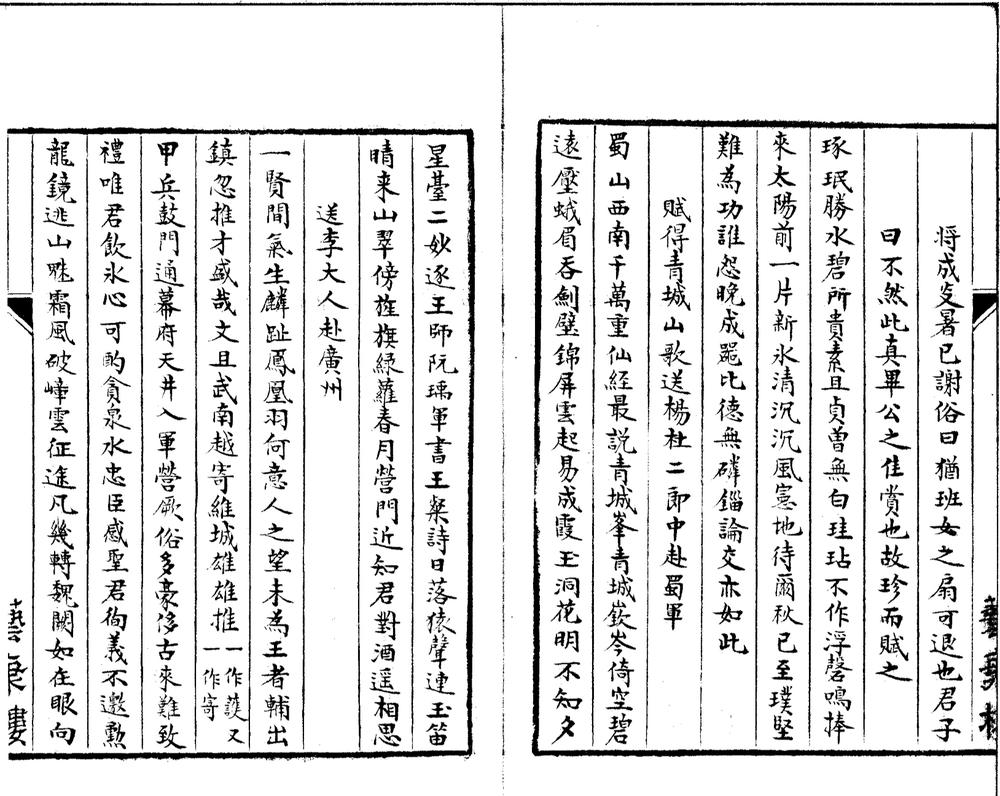 将成矣暑已謝俗曰猶班女之扇可退也君子
曰不然此真畢公之佳賞也故珍而賦之
琢珉勝水碧所貴素且貞曽無白珪玷不作浮磬鳴捧
來太陽前一片新氷清沉沉風憲地待爾秋已至璞堅
難為功誰怨晚成噐比德無磷緇論交亦如此
賦得青城山歌送楊杜二郎中赴蜀軍
蜀山西南千萬重仙經最説青城峯青城嶔岑倚空碧
逺壓蛾眉吞劍壁錦屏雲起易成霞玉洞花明不知夕
星臺二妙逐王師阮瑀軍書王粲詩日落猿聲連玉笛
晴来山翠傍旌旗緑蘿春月營門近知君對酒遥相思
送李大人赴廣州
一賢間氣生麟趾鳳凰羽何意人之望未為王者輔出
鎮忽推才盛哉文且武南越寄維城雄雄推一作䕶又一作寄
甲兵鼓門通幕府天井入軍營厥俗多豪侈古來難致
禮唯君飲氷心可酌貪泉水忠臣感聖君徇義不邀勲
龍鏡逃山魅霜風破嶂雲征途凡幾轉魏闕如在眼向
藝
樓